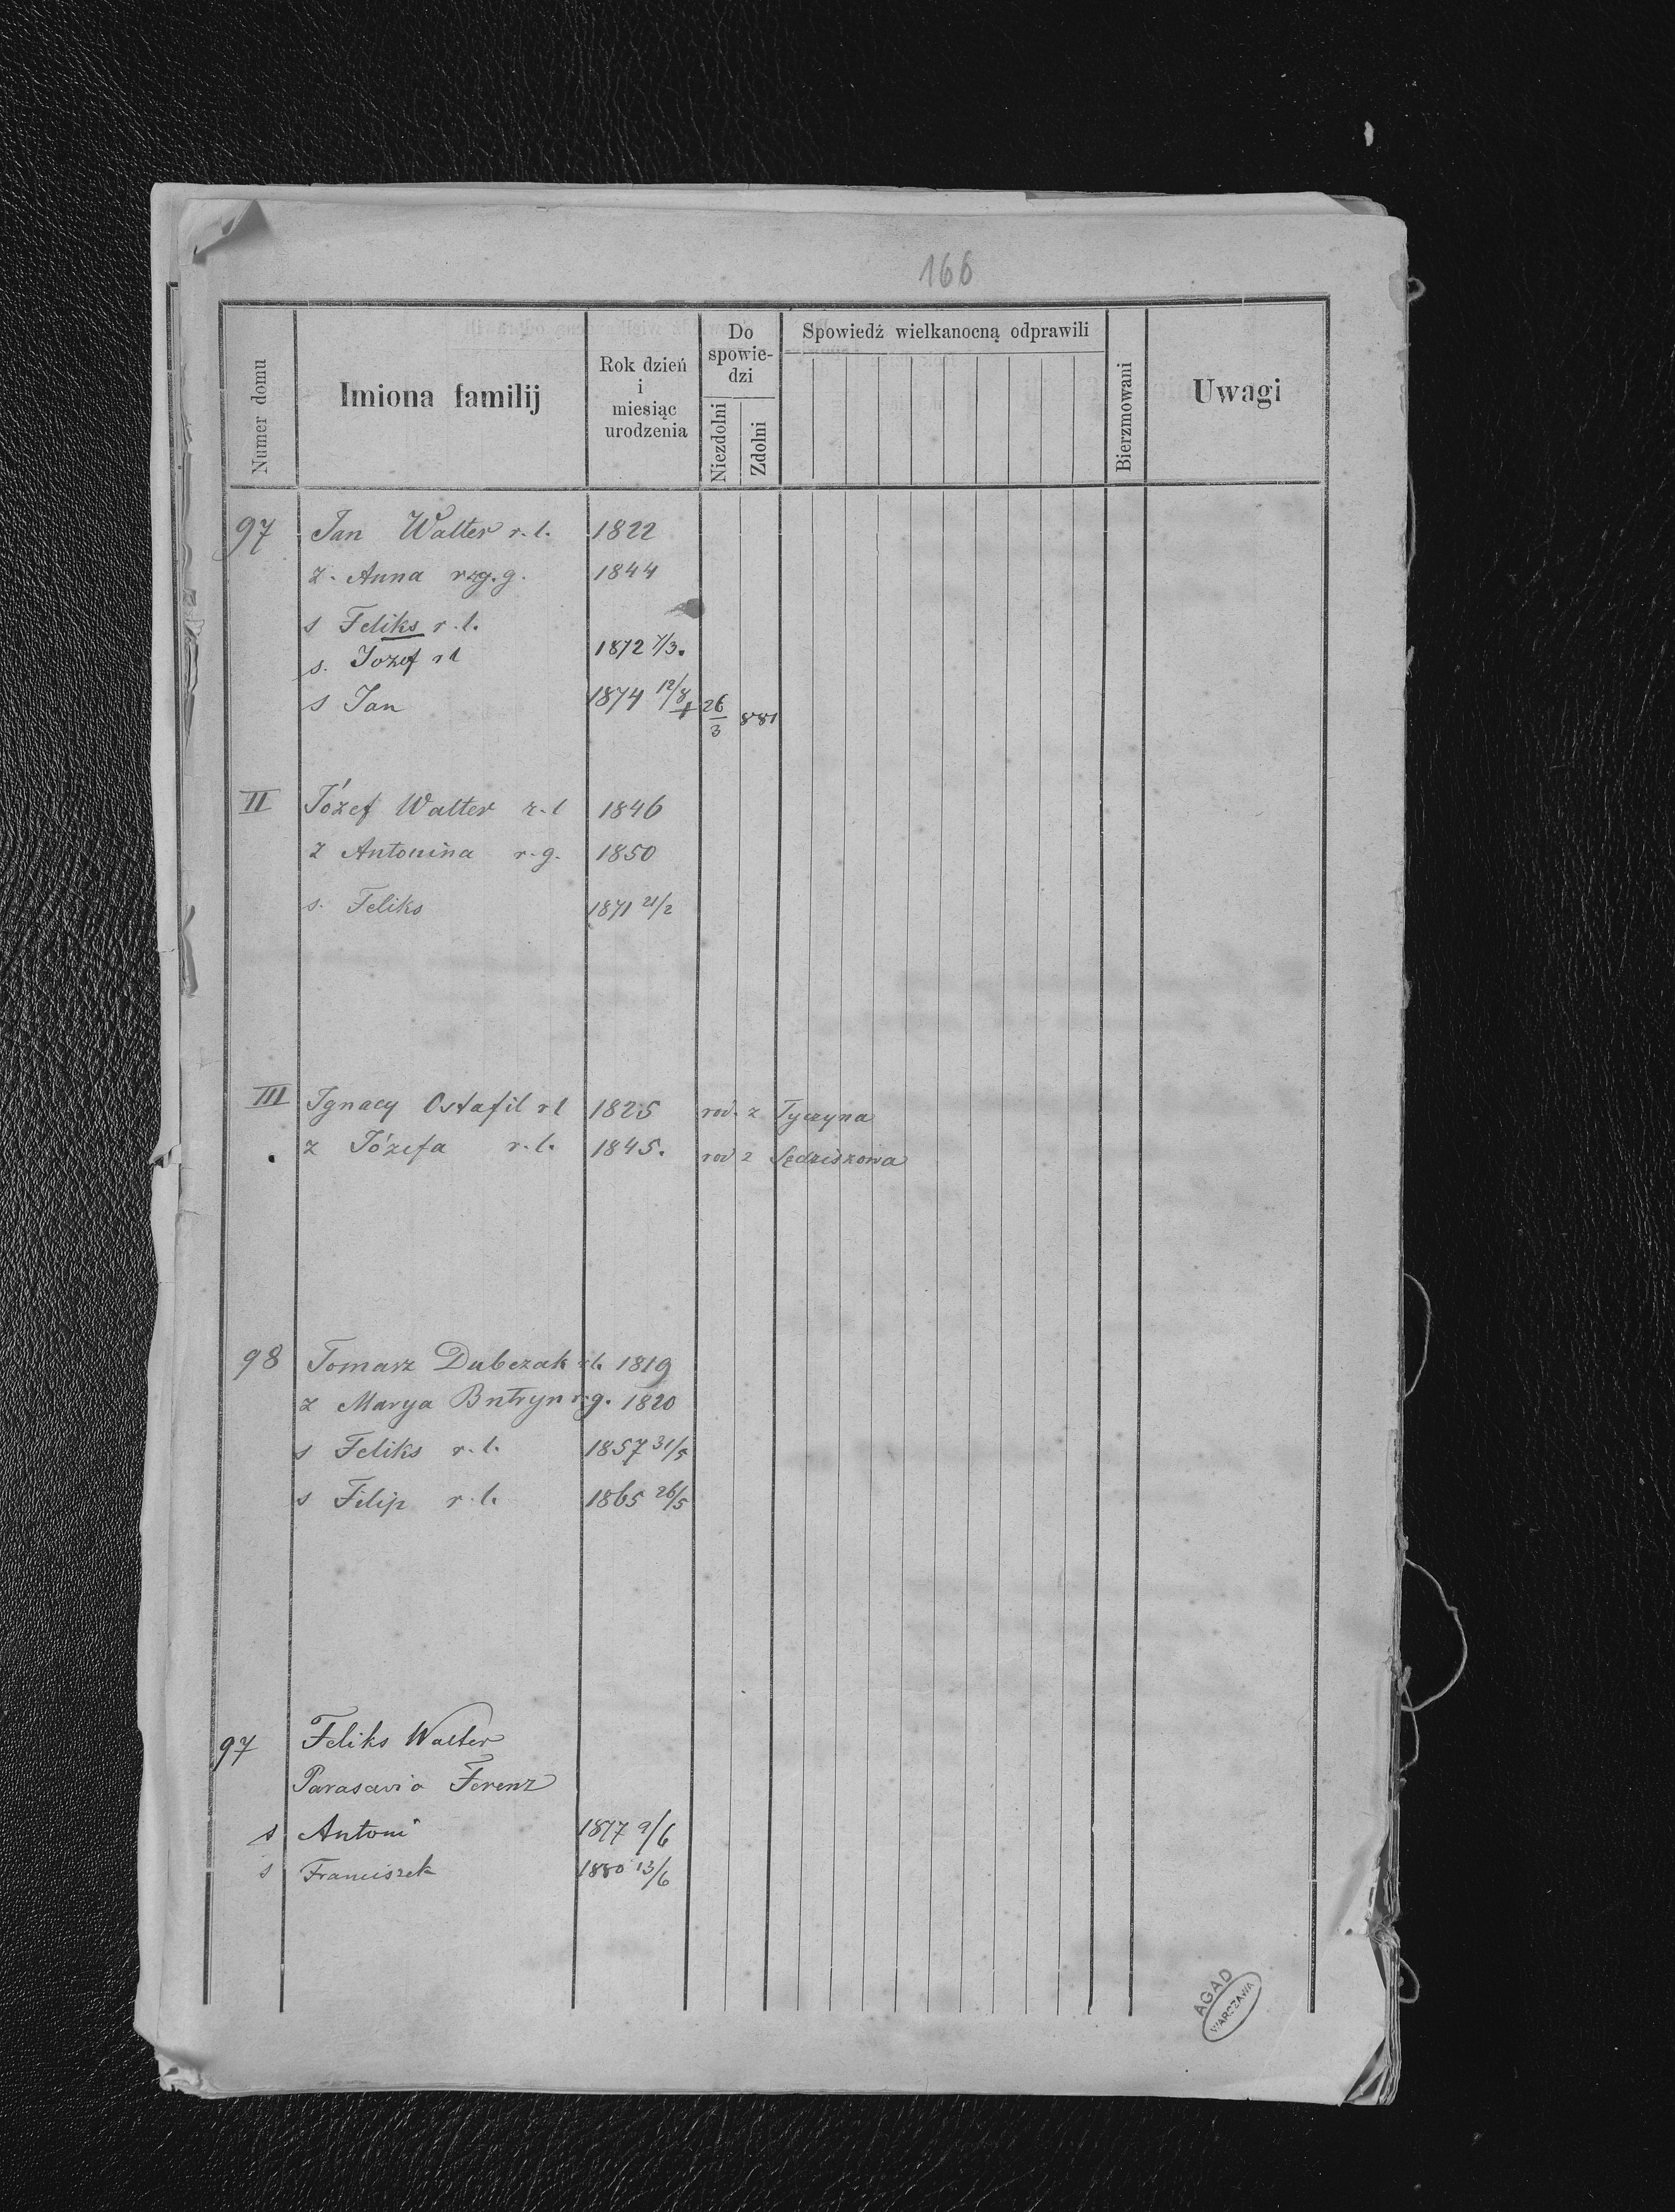 166
Numer domu
Imiona familij
Rok dzień
i
miesiąc
urodzenia
Do
spowie-
dzi
Niezdolni
Zdolni
Spowiedź wielkanocną odprawili
Bierzmowani
Uwagi
97 Jan Walter r. l. 1822
ż. Anna rzg. g. 1844
s Feliks r. l.
s. Jozef rl 1872 7/3.
s Jan 1874 12/8 + 26/3 881
II Józef Walter r. l 1846
ż Antonina r. g. 1850
s. Feliks 1871 21/2
III Ignacy Ostafil rl 1825 rod. z Tyczyna
ż Józefa r. l. 1845. rod z Sędziszowa
98 Tomasz Dubczak rl. 1819
ż Marya Bntryn r. g. 1820
s Feliks r. l. 1857 31/5
s Filip r. l. 1865 26/5
97 Feliks Walter
Parasawia Ferenz
s Antoni 1877 9/6
s Franciszek 1880 13/6
AGAD
WARSZAWA